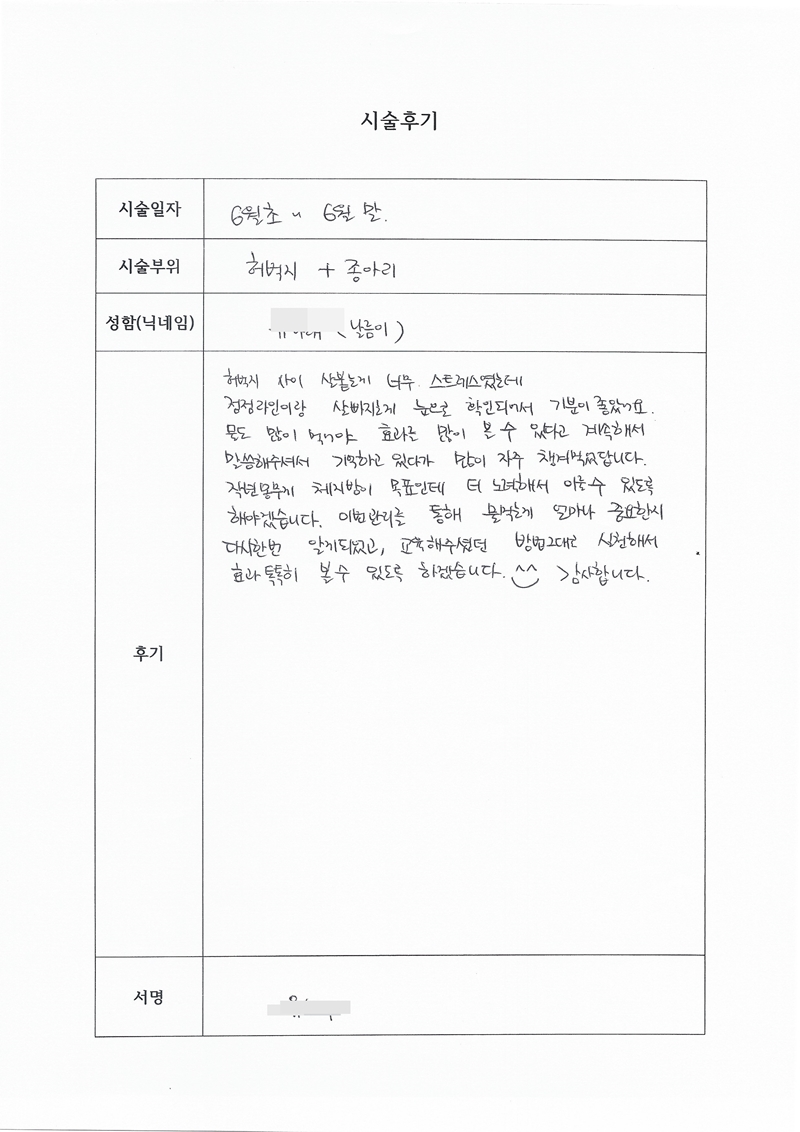 시술후기
시술일자 6월초 ~ 6월 말.
시술부위 허벅지 + 종아리
성함(닉네임) (날름이)
후기
허벅지 사이 살붙는게 너무 스트레스였는데
점점라인이랑 살빠지는게 눈으로 확인되어서 기분이 좋았어요.
물도 많이 먹어야 효과를 많이 볼 수 있다고 계속해서
말씀해주셔서 기억하고 있다가 많이 자주 챙겨먹었답니다.
작년몸무게 체지방이 목표인데 더 노력해서 이룰수 있도록
해야겠습니다. 이번관리를 통해 물먹는게 얼마나 중요한지
다시한번 알게되었고, 교육해주셨던 방법그대로 실천해서
효과톡톡히 볼수 있도록 하겠습니다. ^^ 감사합니다.
서명